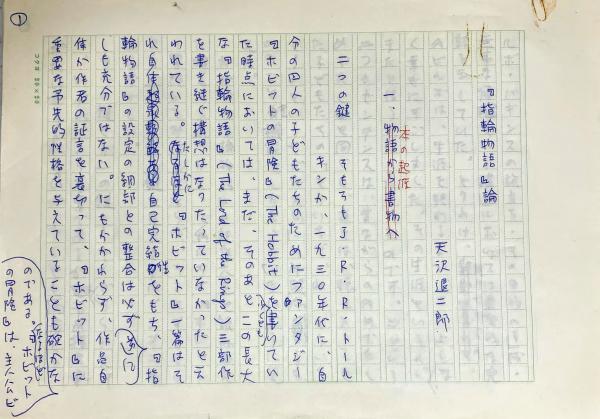 ①
『指輪物語』論
天沢退二郎
一、物語から書物へ
本の起源
二つの鍵 そもそもJ・R・R・トール
キンが、一九三〇年代に、自
分の四人の子どもたちのためにファンタジー
『ホビットの冒険』(The Hobbit)を書いてい
た時点においては、まだ、そのあとこの長大
な『指輪物語』(The Lord of the Rings)三部作
を書き継ぐ構想はなかったと言
われている。たしかに『ホビット』一篇はそ
れ自体自己完結性をもち、『指
輪物語』の設定の細部との整合は必ず
しも充分ではない。にもかかわらず、作品自
体が作者の証言を裏切って、『ホビット』に
重要な予先的性格を与えていることも確かな
のである。『ホビット
の冒険』は、主人公ビ
コクヨ 20×20